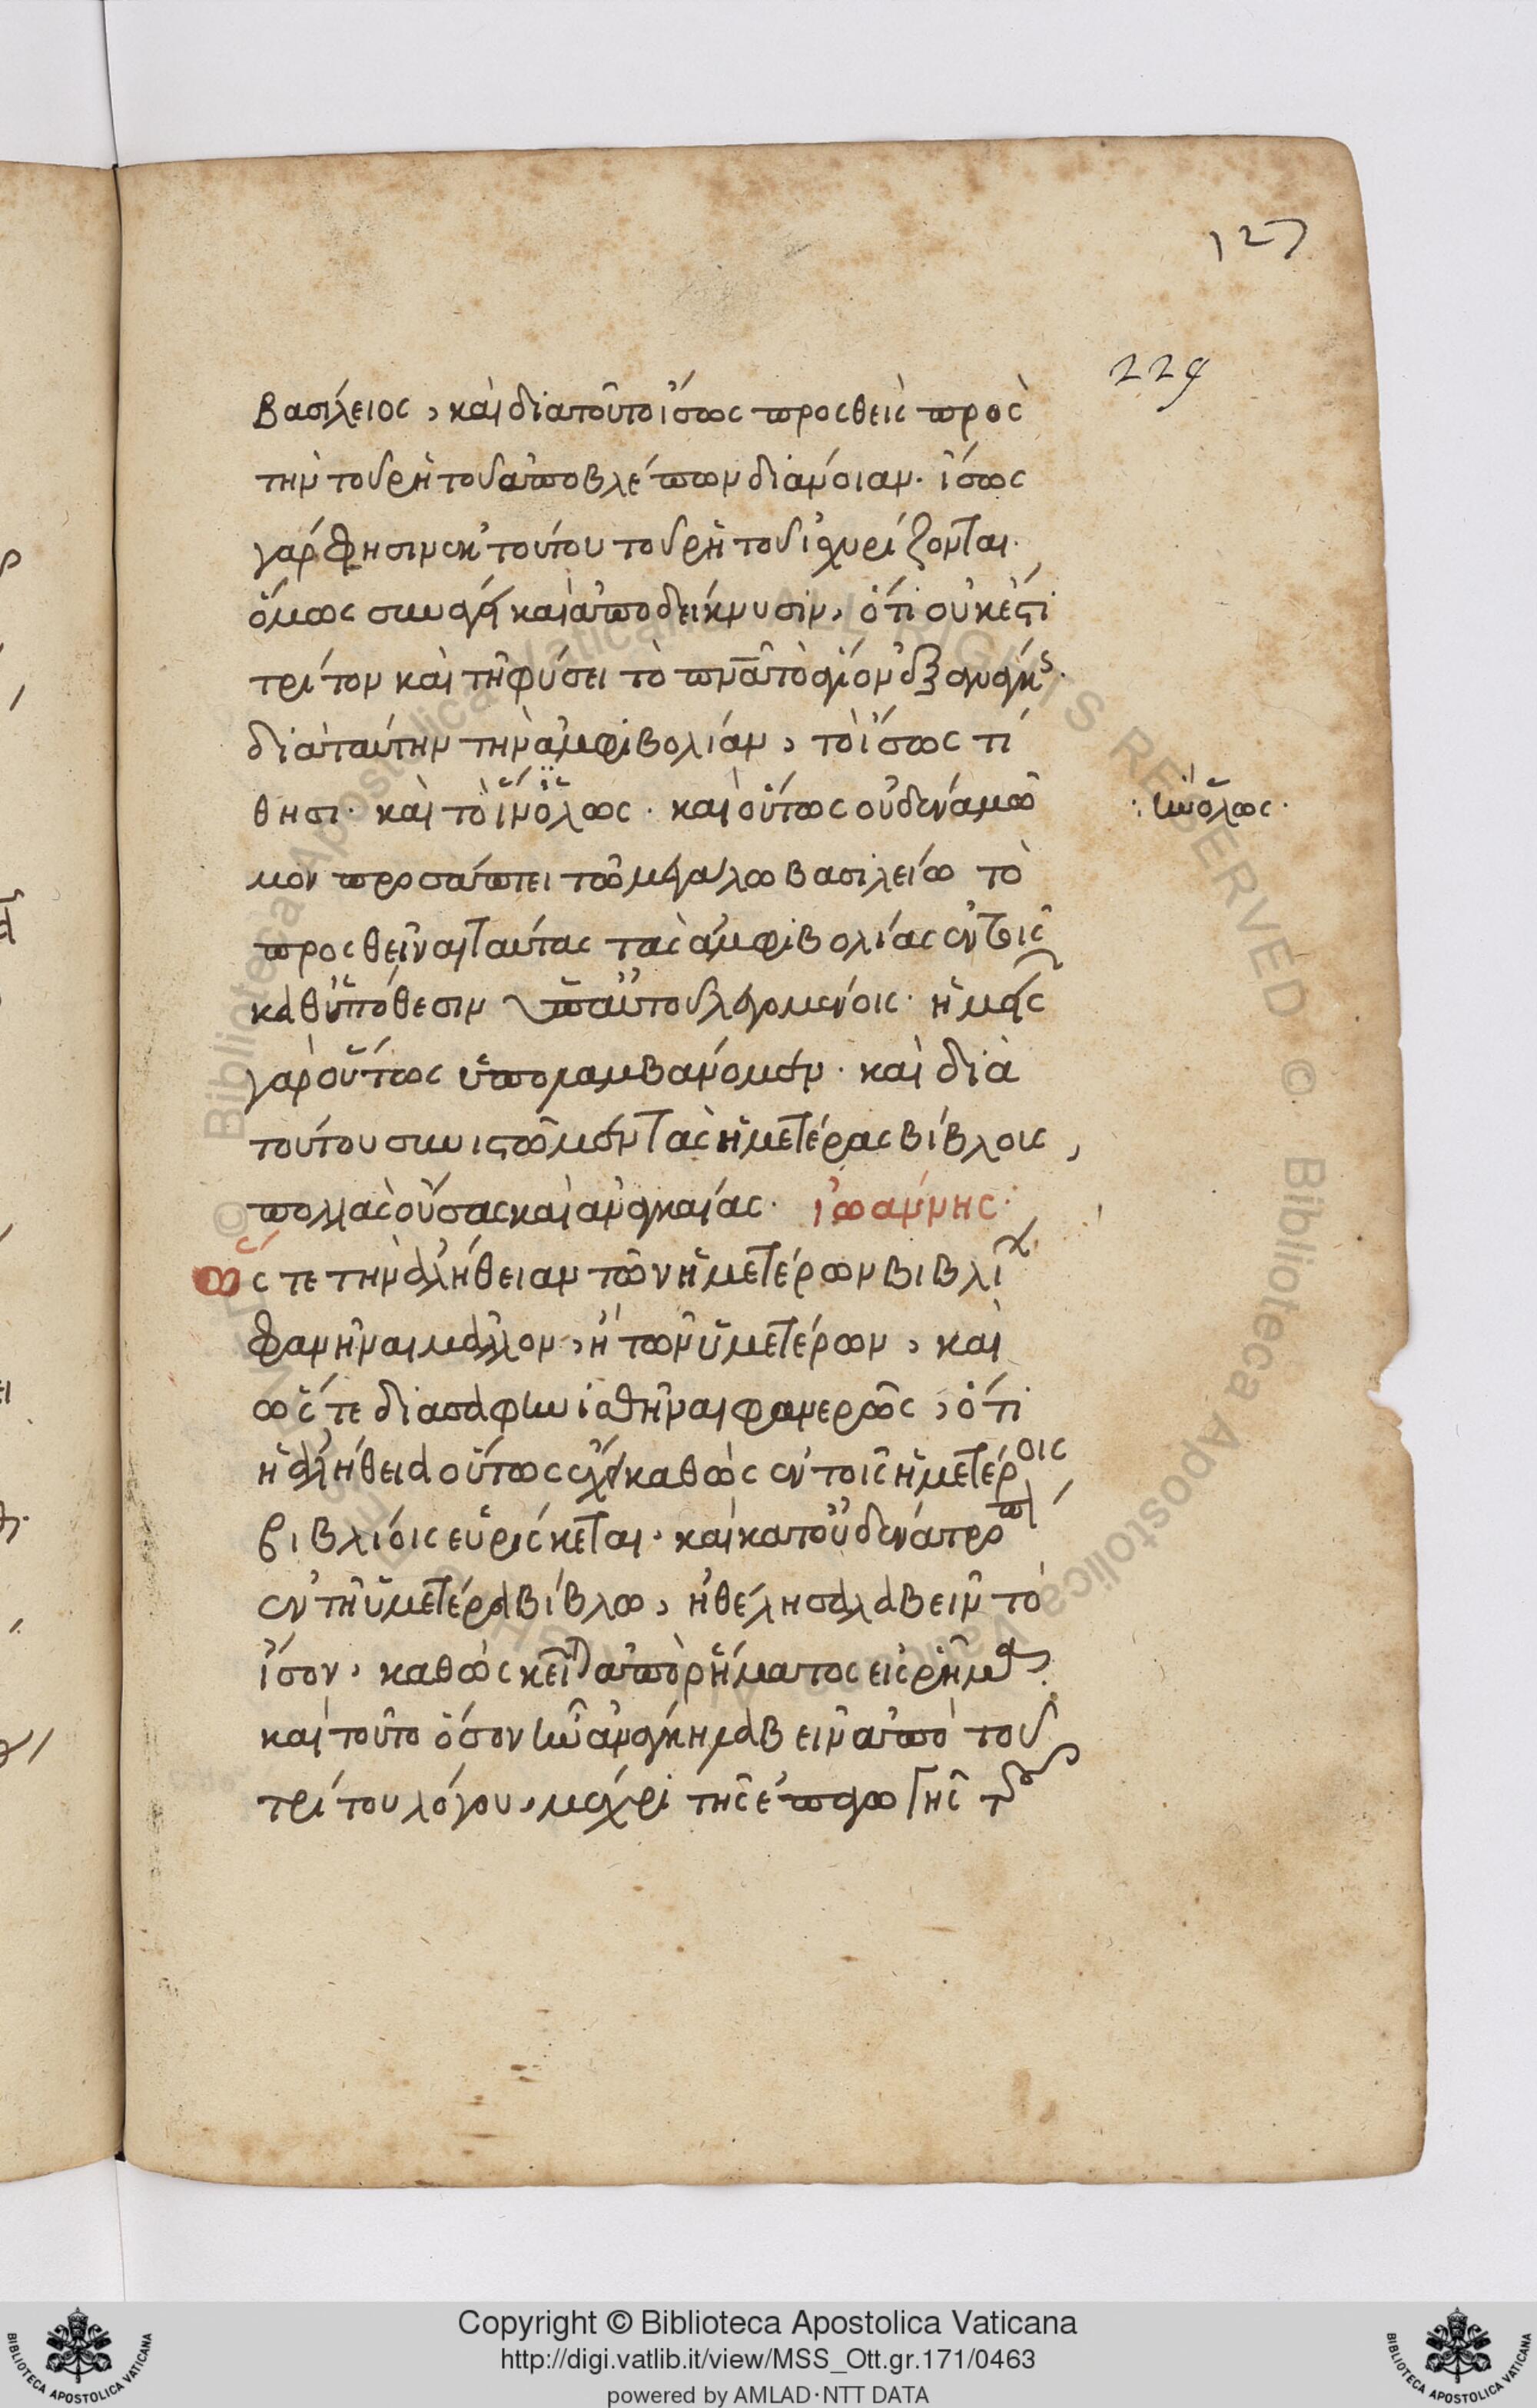 127
229
βασίλειος, καὶ διατοῦτο ἴσως προςθεὶς πρὸς
τὴν τοῦ ρητοῦ ἀποβλέπων διάνοιαν. ἴσως
γάρ φησιν ἐκ τούτου τοῦ ρητοῦ ἰσχυρίζονται.
ὅμως συνάγει καὶ ἀποδείκνυσιν, ὅτι οὐκ ἔστι
τρίτον καὶ τῇ φύσει τὸ πνᾶ τὸ ἅγιον ἐξ ἀνάγκης.
διὰ ταύτην τὴν ἀμφιβολίαν, τὸ ἴσως τί
θησι. καὶ τὸ ἵν' ὅλως. καὶ οὕτως οὐδὲν ἄμω
μον προσάπτει τῶ μεγάλω βασιλείω τὸ
: ἵν' ὅλως.
προςθεῖναι ταύτας τὰς ἀμφιβολίας ἐν τοῖς
καθ' ὑπόθεσιν ὑπ' αὐτοῦ λεγομένοις. ἡμεῖς
γὰρ οὕτως ὑπολαμβάνομεν. καὶ διὰ
τούτου συνιστῶμεν τὰς ἡμετέρας βίβλους,
πολλὰς οὔσας καὶ ἀναγκαίας. ἰωάννης.
ὥςτε τὴν ἀλήθειαν τῶν ἡμετέρων βιβλίων
φανῆναι μᾶλλον, ἢ τῶν ὑμετέρων, καὶ
ὥςτε διασαφηνισθῆναι φανερῶς, ὅτι
ἡ ἀλήθεια οὕτως ἔχει καθὼς ἐν τοῖς ἡμετέροις
βιβλίοις εὑρίσκεται. καὶ κατ' οὐδένα τρόπον
ἐν τῇ ὑμετέρα βίβλω, ἠθέλησα λαβεῖν τὸ
ἴσον, καθὼς κεῖται ἀπὸ ρήματος εἰς ρῆμα.
καὶ τοῦτο ὅσον ἦν ἀνάγκη λαβεῖν ἀπὸ τοῦ
τρίτου λόγου, μέχρι τῆς ἐπαγωγῆς τοῦ
Copyright © Biblioteca Apostolica Vaticana
http://digi.vatlib.it/view/MSS_Ott.gr.171/0463
powered by AMLAD·NTT DATA